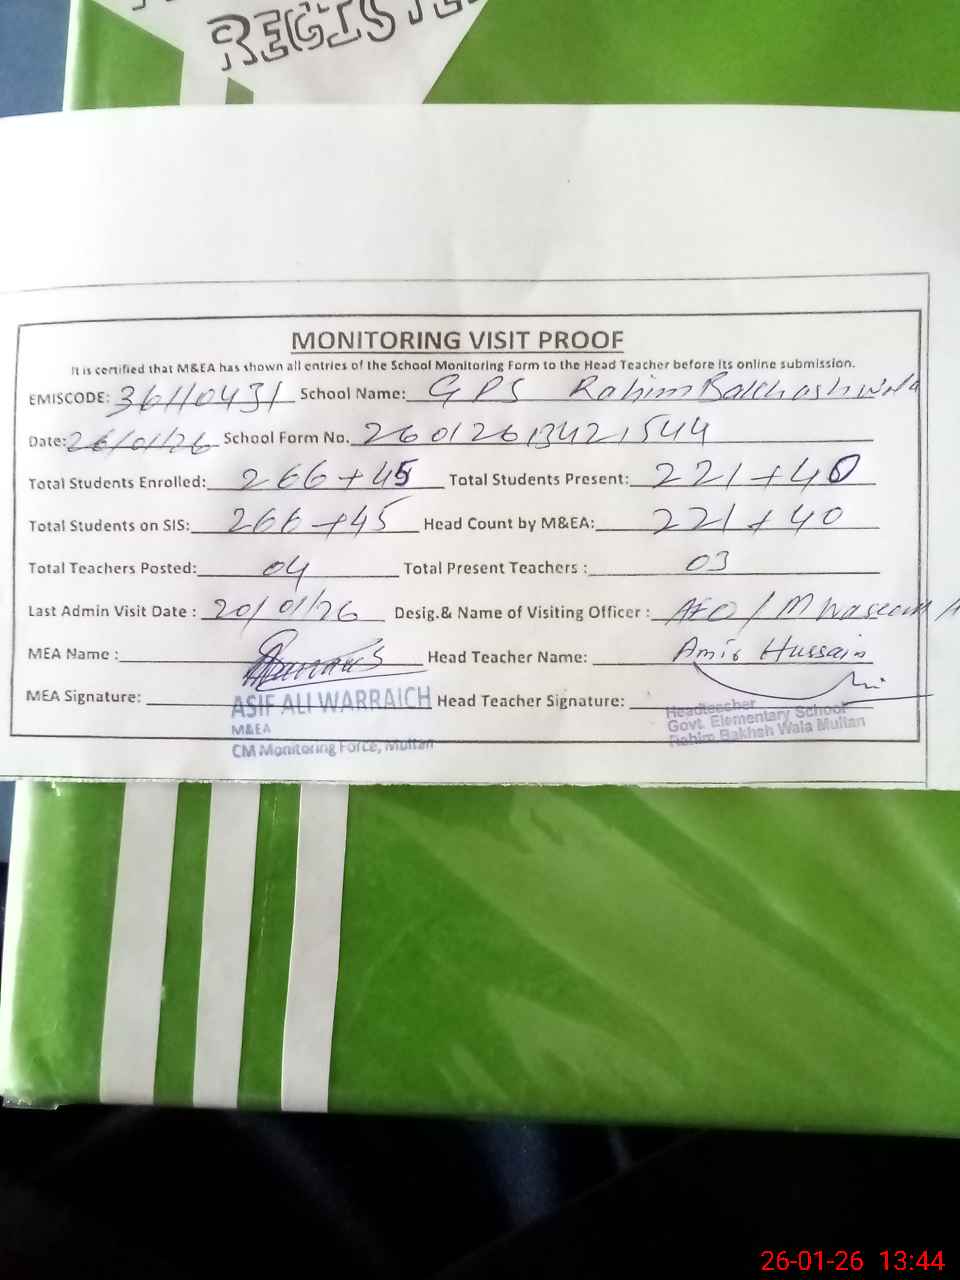 REGISTER
MONITORING VISIT PROOF
It is certified that M&EA has shown all entries of the School Monitoring Form to the Head Teacher before its online submission.
EMISCODE: 36110431 School Name: GPS Rahim Bakhashwala
Date: 26/01/26 School Form No. 26012613421544
Total Students Enrolled: 266+45 Total Students Present: 221+40
Total Students on SIS: 266+45 Head Count by M&EA: 221+40
Total Teachers Posted: 04 Total Present Teachers : 03
Last Admin Visit Date : 20/01/26 Desig.& Name of Visiting Officer : AEO / M Waseem
MEA Name : Head Teacher Name: Amir Hussain
MEA Signature: Head Teacher Signature:
ASIF ALI WARRAICH
M&EA
CM Monitoring Force, Multan
Headteacher
Govt. Elementary School
Rahim Bakhsh Wala Multan
26-01-26 13:44